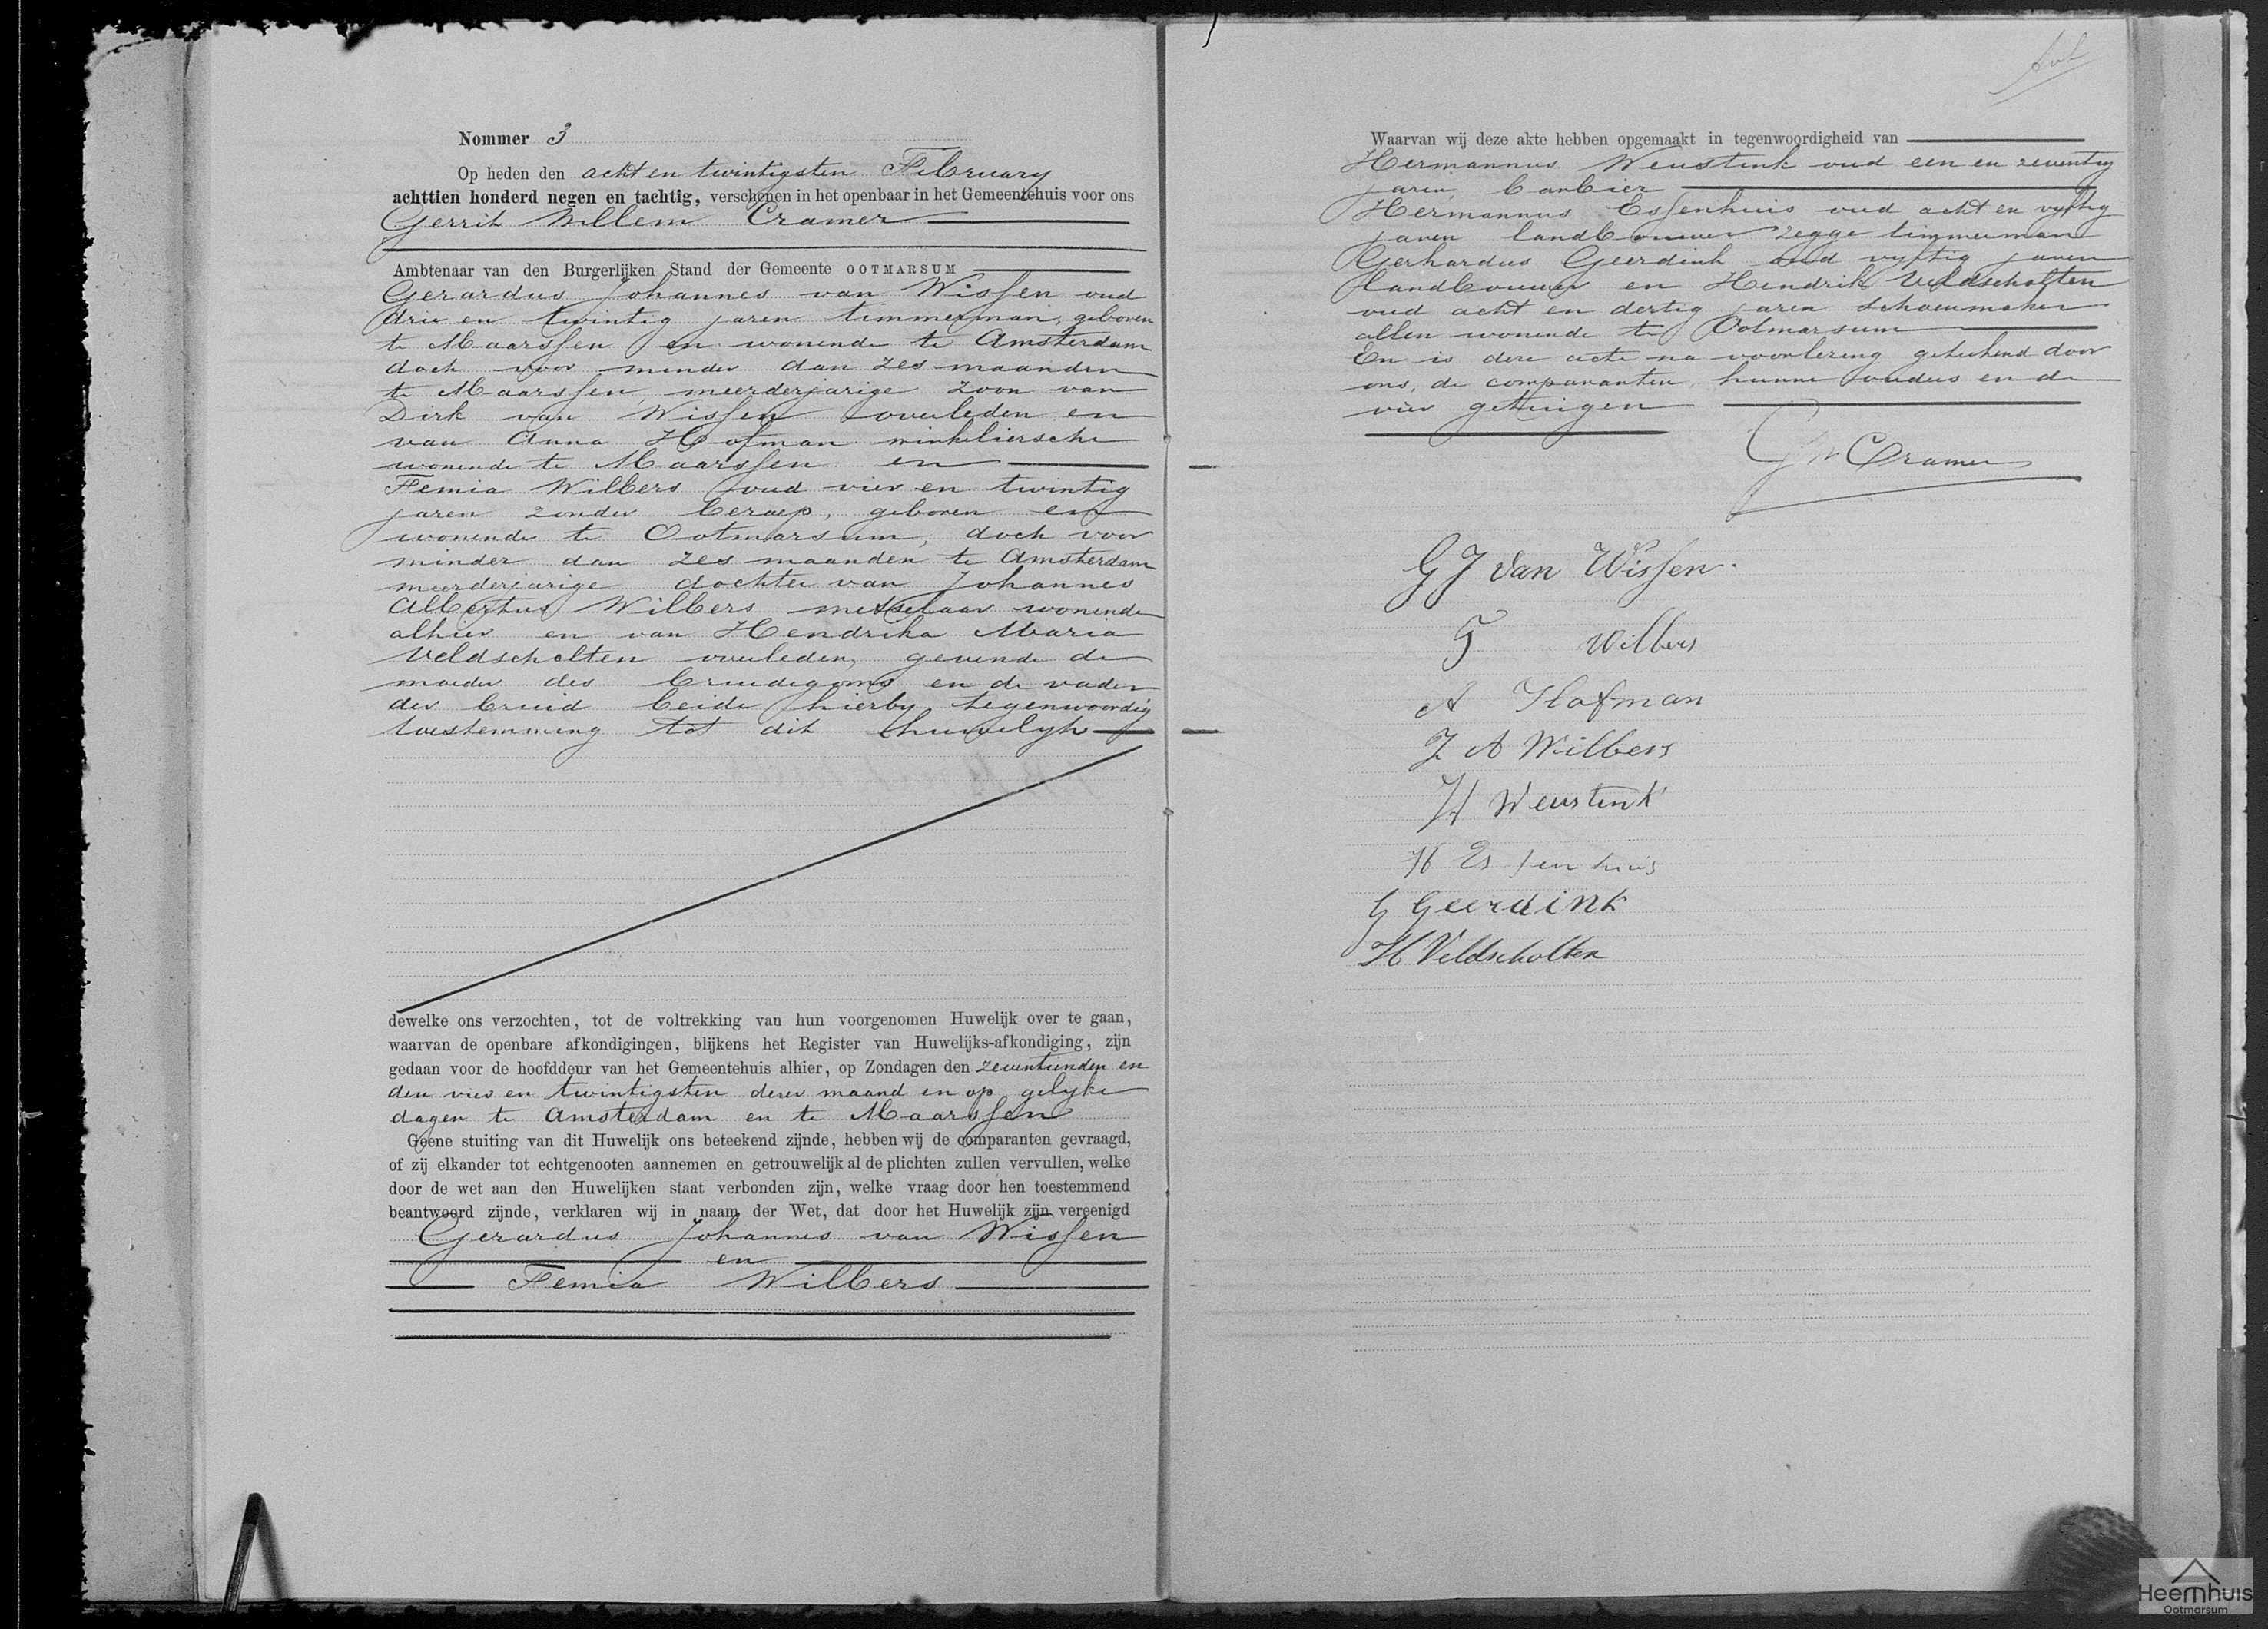 Nommer 3
Op heden den acht en twintigsten February
achttien honderd negen en tachtig, verschenen in het openbaar in het Gemeentehuis voor ons
Gerrit Willem Cramer
Ambtenaar van den Burgerlijken Stand der Gemeente OOTMARSUM
Gerardus Johannes van Wissen oud
drie en twintig jaren timmerman, geboren
te Maarssen en wonende te Amsterdam
doch voor minder dan zes maanden
te Maarssen, meerderjarige zoon van
Dirk van Wissen overleden en
van Anna Hofman winkeliersche
wonende te Maarssen en
Femia Wilbers oud vier en twintig
jaren zonder beroep, geboren en
wonende te Ootmarsum, doch voor
minder dan zes maanden te Amsterdam
meerderjarige dochter van Johannes
Albertus Wilbers metselaar wonende
alhier en van Hendrika Maria
Veldscholten overleden, gevende de
moeder des bruidegoms en de vader
der bruid beide hierby tegenwoordig
toestemming tot dit huwelyk
dewelke ons verzochten, tot de voltrekking van hun voorgenomen Huwelijk over te gaan,
waarvan de openbare afkondigingen, blijkens het Register van Huwelijks-afkondiging, zijn
gedaan voor de hoofddeur van het Gemeentehuis alhier, op Zondagen den zeventienden en
den vier en twintigsten dezer maand en op gelyke
dagen te Amsterdam en te Maarssen
Geene stuiting van dit Huwelijk ons beteekend zijnde, hebben wij de comparanten gevraagd,
of zij elkander tot echtgenooten aannemen en getrouwelijk al de plichten zullen vervullen, welke
door de wet aan den Huwelijken staat verbonden zijn, welke vraag door hen toestemmend
beantwoord zijnde, verklaren wij in naam der Wet, dat door het Huwelijk zijn vereenigd
Gerardus Johannes van Wissen
en
Femia Wilbers
Waarvan wij deze akte hebben opgemaakt in tegenwoordigheid van
Hermannus Weustink oud een en zeventig
jaren, barbier
Hermannus Essenhuis oud acht en vyftig
jaren landbouwer zegge timmerman
Gerhardus Geerdink oud vyftig jaren
landbouwer en Hendrik Veldscholten
oud acht en dertig jaren schoenmaker
allen wonende te Ootmarsum
En is deze acte na voorlezing geteekend door
ons, de comparanten, hunne ouders en de
vier getuigen
GW Cramer
GJ van Wissen.
F Wilbers
A Hofman
J A Wilbers
H Weustink
H Essenhuis
G Geerdink
H Veldscholten
Heemhuis
Ootmarsum